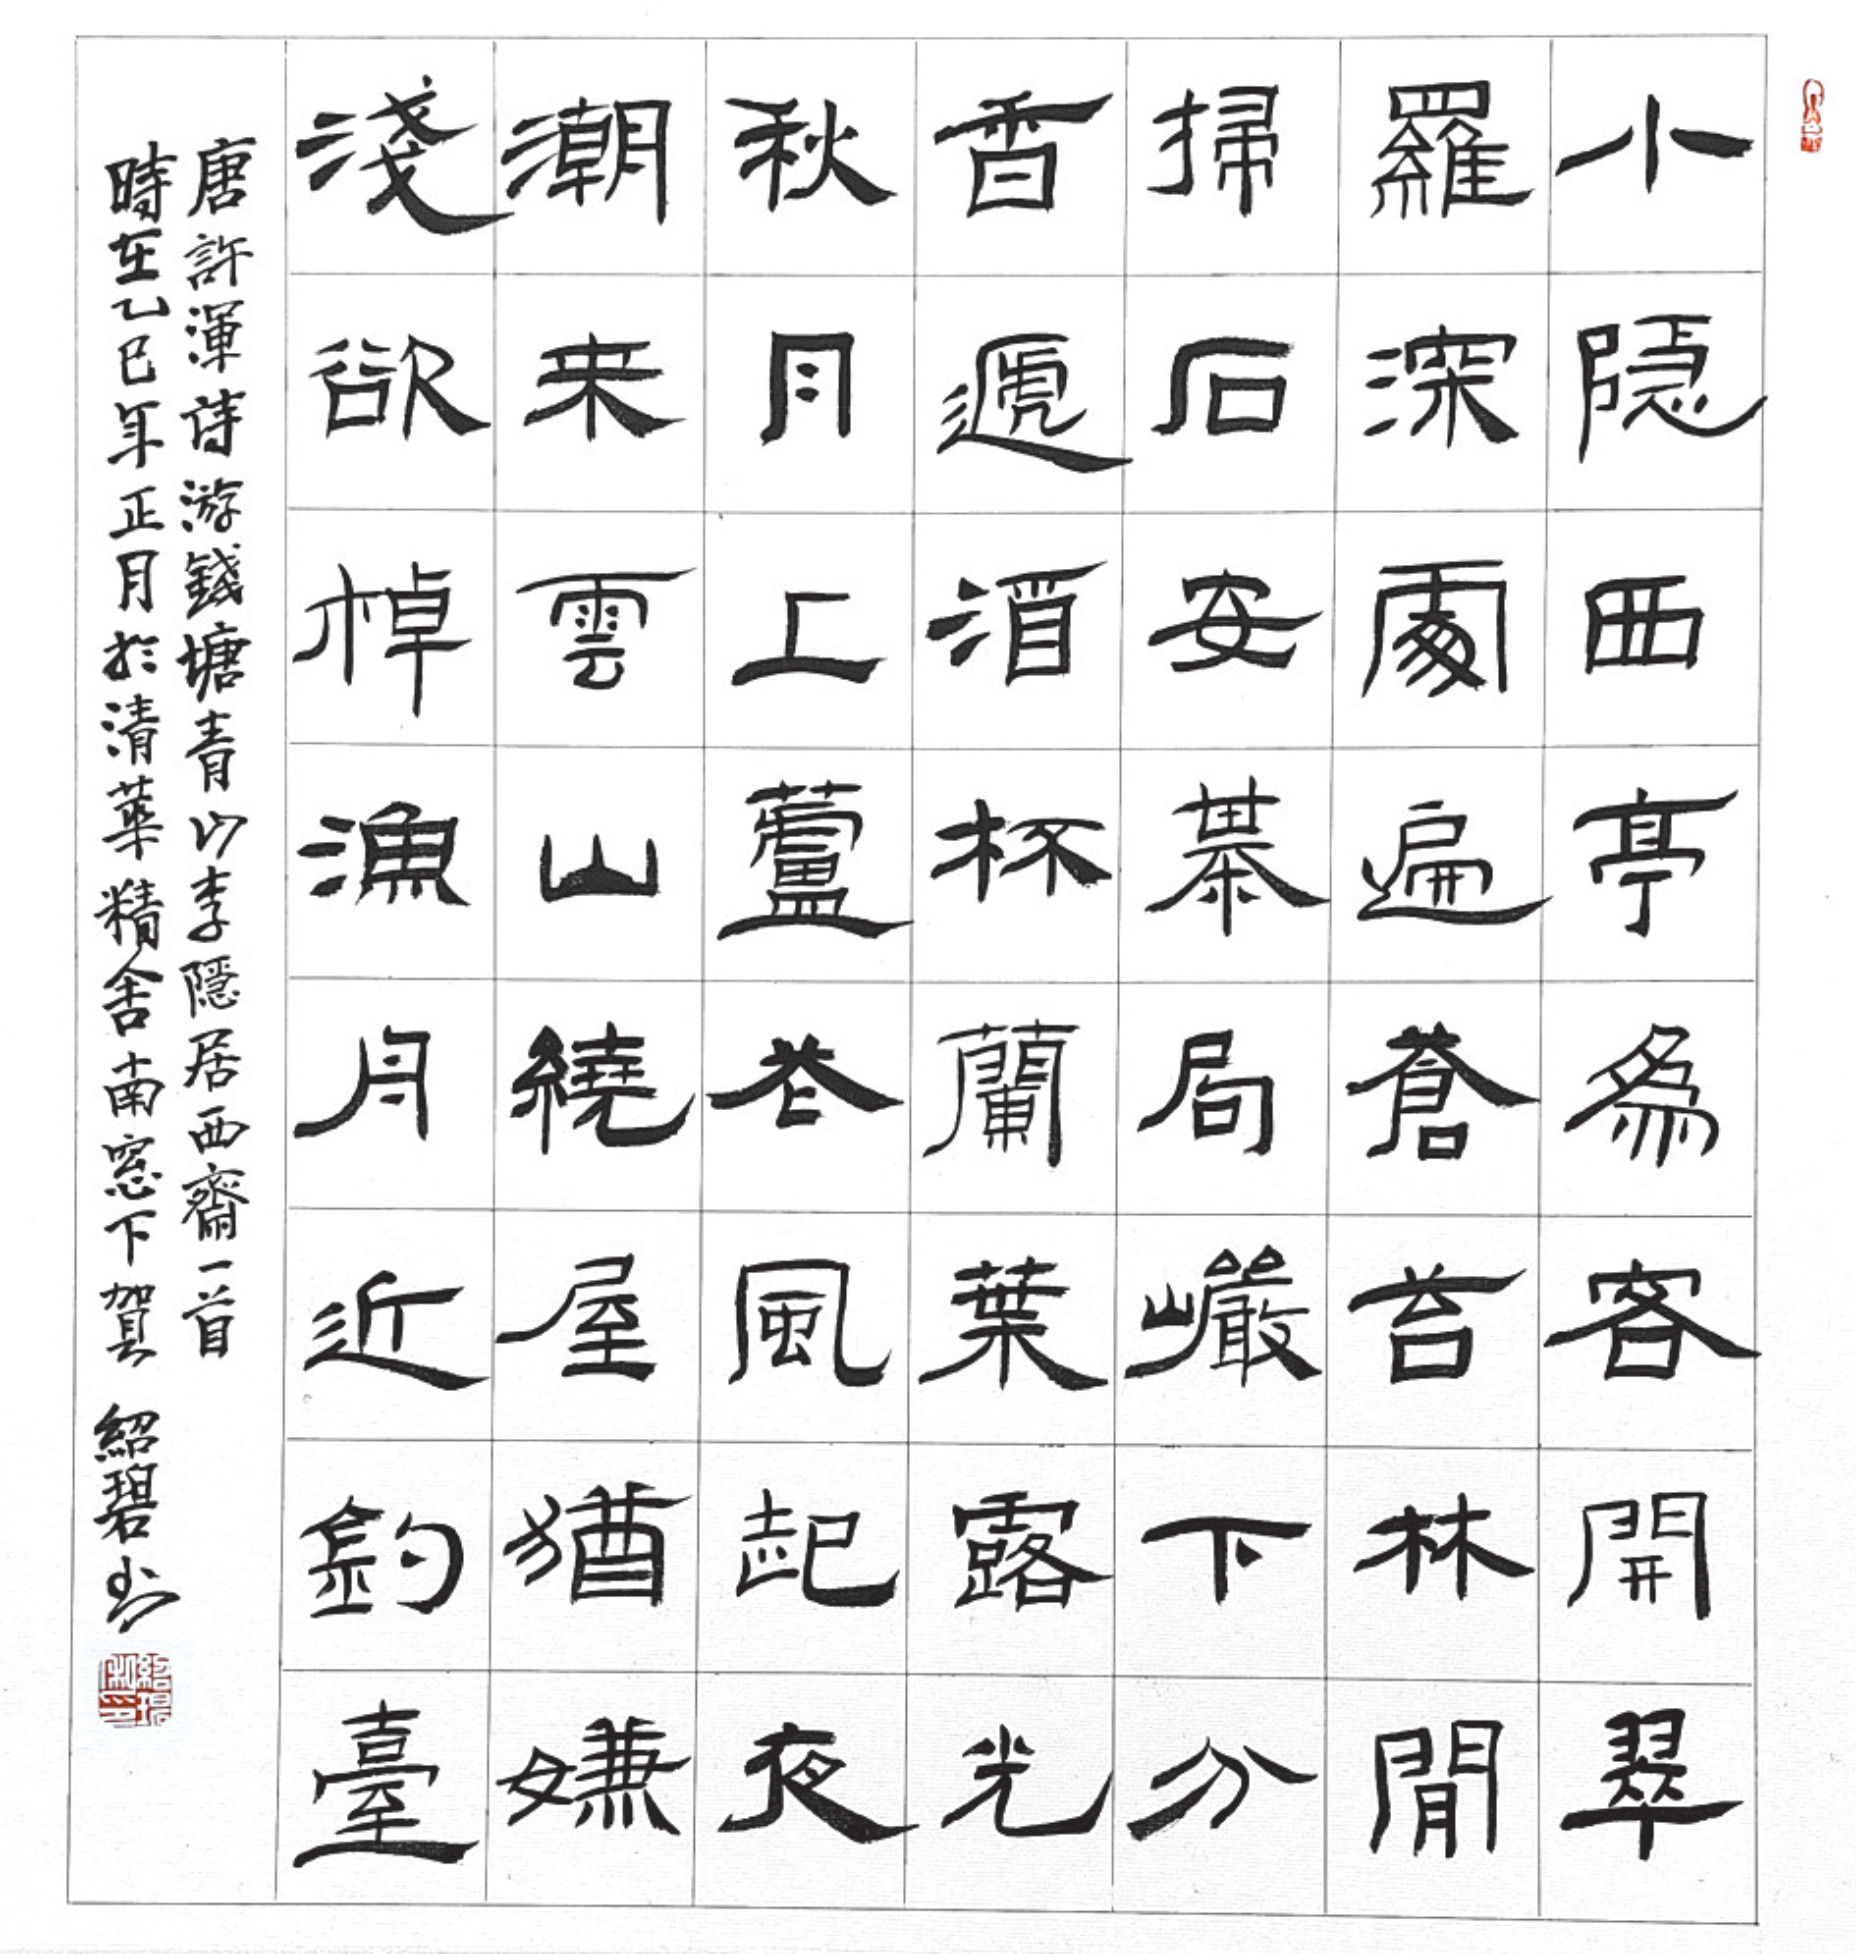 小隐西亭為客開翠
羅深處遍蒼苔林閒
掃石安棊局巖下分
香遞酒杯蘭葉露光
秋月上蘆花風起夜
潮来雲山繞屋猶嫌
淺欲棹漁舟近釣臺
唐許渾詩游錢塘青山李隱居西齋一首
時在乙巳年正月於清華精舍南窓下賀紹碧书